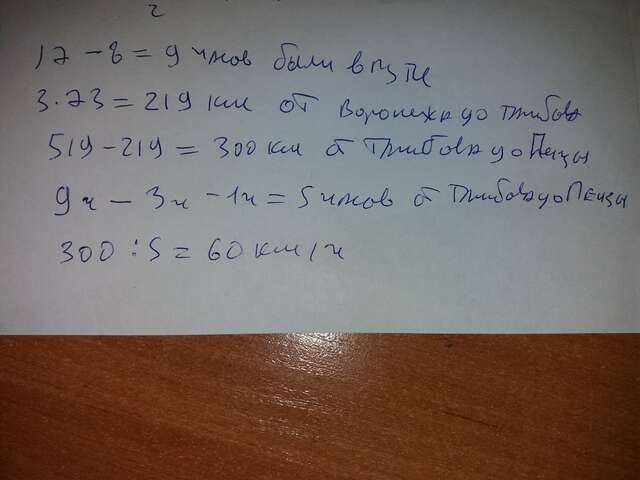 17 - 8 = 9 часов были в пути
3 · 73 = 219 км от Воронежа до Тамбова
519 - 219 = 300 км от Тамбова до Пензы
9ч - 3ч - 1ч = 5 часов от Тамбова до Пензы
300 : 5 = 60 км/ч